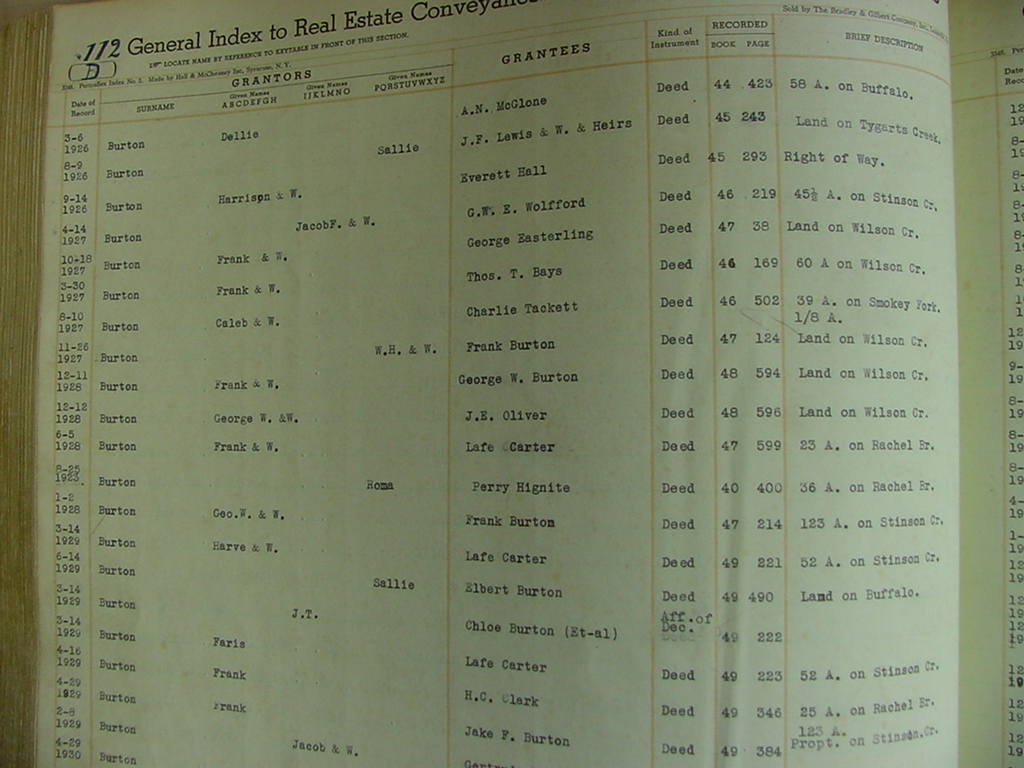 112 General Index to Real Estate Conveyances
D
LOCATE NAME BY REFERENCE TO KEYTABLE IN FRONT OF THIS SECTION.
Permaflex Index No. 2. Made by Hall & McChesney Inc, Syracuse, N.Y.
Sold by The Bradley & Gilbert Company, Inc.
GRANTORS GRANTEES Kind of Instrument RECORDED BRIEF DESCRIPTION
Date of Record SURNAME Given Names ABCDEFGH Given Names IJKLMNO Given Names PQRSTUVWXYZ BOOK PAGE
3-6 1926 Burton Dellie A.N. McGlone Deed 44 423 58 A. on Buffalo.
8-9 1926 Burton Sallie J.F. Lewis & W. & Heirs Deed 45 243 Land on Tygarts Creek.
9-14 1926 Burton Harrison & W. Everett Hall Deed 45 293 Right of Way.
4-14 1927 Burton JacobF. & W. G.W. E. Wolfford Deed 46 219 45½ A. on Stinson Cr.
10-18 1927 Burton Frank & W. George Easterling Deed 47 38 Land on Wilson Cr.
3-30 1927 Burton Frank & W. Thos. T. Bays Deed 46 169 60 A on Wilson Cr.
8-10 1927 Burton Caleb & W. Charlie Tackett Deed 46 502 39 A. on Smokey Fork.
1/8 A.
11-26 1927 Burton W.H. & W. Frank Burton Deed 47 124 Land on Wilson Cr.
12-11 1928 Burton Frank & W. George W. Burton Deed 48 594 Land on Wilson Cr.
12-12 1928 Burton George W. &W. J.E. Oliver Deed 48 596 Land on Wilson Cr.
6-5 1928 Burton Frank & W. Lafe Carter Deed 47 599 23 A. on Rachel Br.
8-25 1923 Burton Roma Perry Hignite Deed 40 400 36 A. on Rachel Br.
1-2 1928 Burton Geo.W. & W. Frank Burton Deed 47 214 123 A. on Stinson Cr.
3-14 1929 Burton Harve & W. Lafe Carter Deed 49 221 52 A. on Stinson Cr.
6-14 1929 Burton Sallie Elbert Burton Deed 49 490 Land on Buffalo.
3-14 1929 Burton J.T. Chloe Burton (Et-al) Aff. of Dec. 49 222
3-14 1929 Burton Faris Lafe Carter Deed 49 223 52 A. on Stinson Cr.
4-16 1929 Burton Frank H.C. Clark Deed 49 346 25 A. on Rachel Br.
4-29 1929 Burton Frank Jake F. Burton Deed 49 384 123 A. Propt. on Stinson.Cr.
2-8 1929 Burton Jacob & W.
4-29 1930 Burton